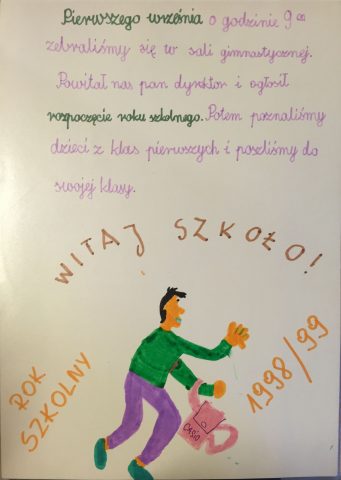 Pierwszego września o godzinie 9⁰⁰
zebraliśmy się w sali gimnastycznej.
Powitał nas pan dyrektor i ogłosił
rozpoczęcie roku szkolnego. Potem poznaliśmy
dzieci z klas pierwszych i poszliśmy do
swojej klasy.
WITAJ SZKOŁO!
ROK
SZKOLNY
1998/99
CASIO